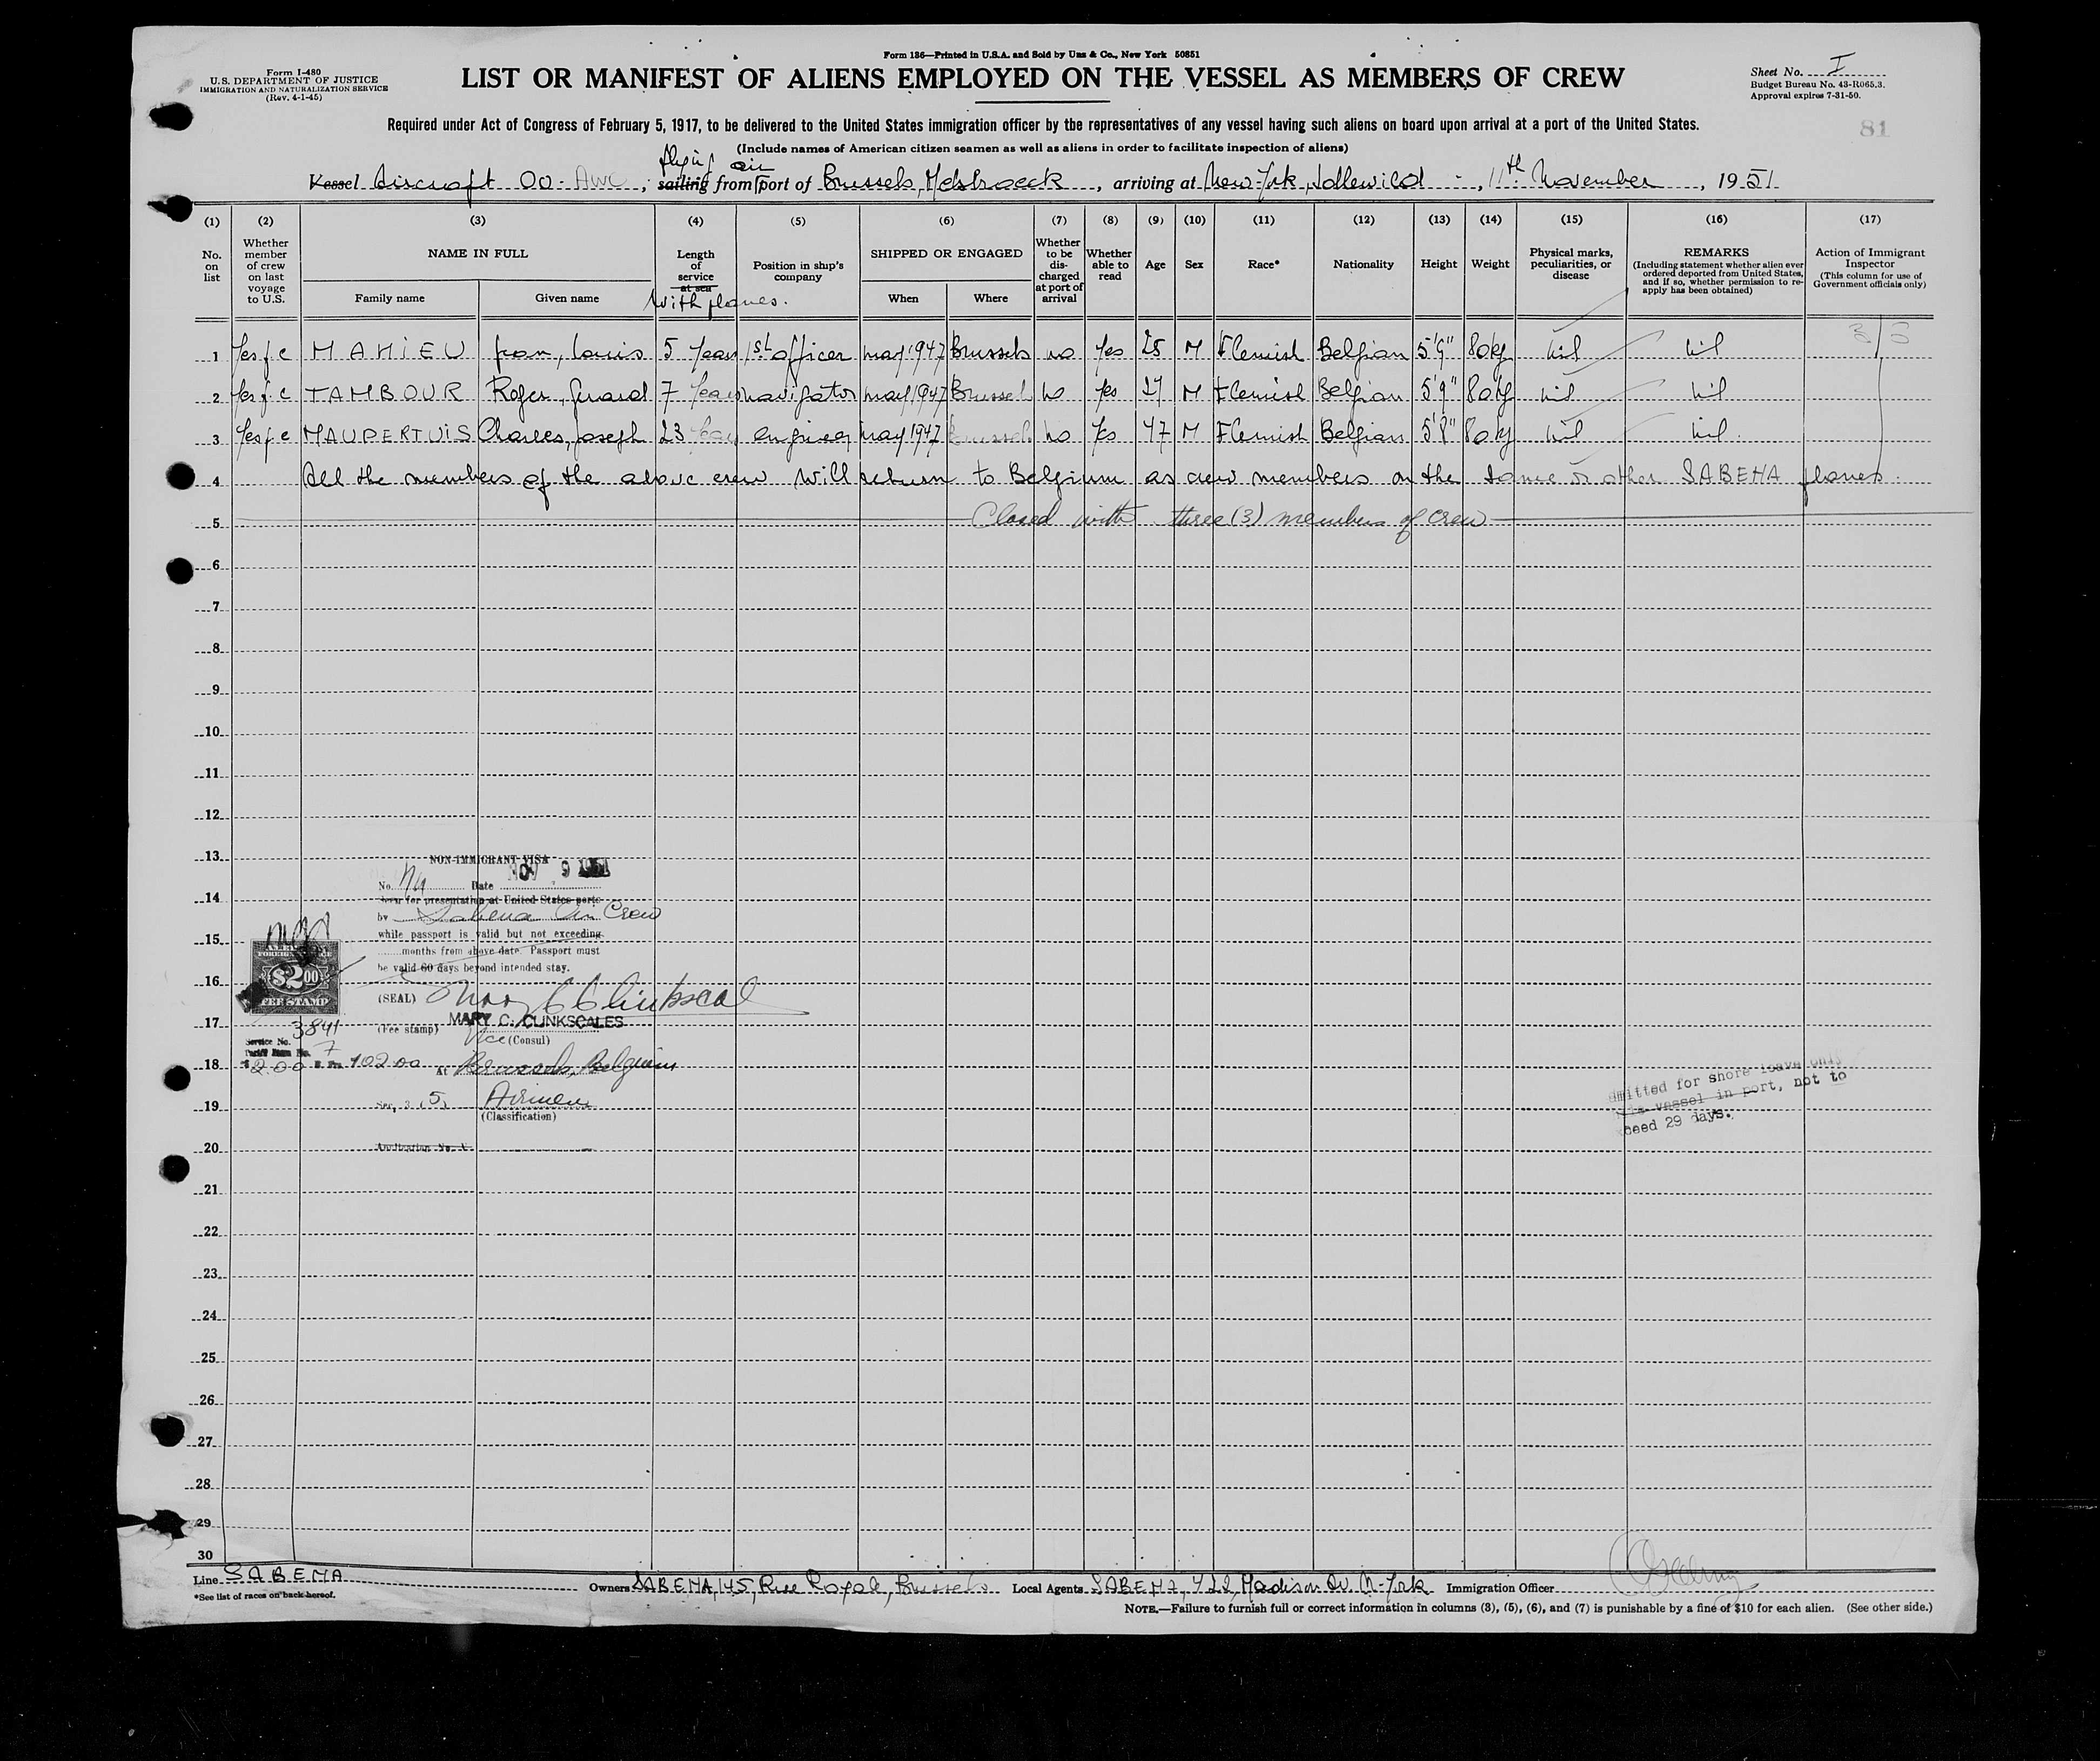 Form 136—Printed in U.S.A. and Sold by Unz & Co., New York 50851
Form I-480
U.S. DEPARTMENT OF JUSTICE
IMMIGRATION AND NATURALIZATION SERVICE
(Rev. 4-1-45)
LIST OR MANIFEST OF ALIENS EMPLOYED ON THE VESSEL AS MEMBERS OF CREW
Sheet No. I
Budget Bureau No. 43-R065.3.
Approval expires 7-31-50.
81
Required under Act of Congress of February 5, 1917, to be delivered to the United States immigration officer by the representatives of any vessel having such aliens on board upon arrival at a port of the United States.
(Include names of American citizen seamen as well as aliens in order to facilitate inspection of aliens)
flying air
Vessel Aircraft OO-AWC, sailing from port of Brussels, Melsbroeck, arriving at New-York, Idlewild, 11th November, 1951
(1) (2) (3) (4) (5) (6) (7) (8) (9) (10) (11) (12) (13) (14) (15) (16) (17)
No. on list
Whether member of crew on last voyage to U.S.
NAME IN FULL
Family name
Given name
Length of service at sea
with planes.
Position in ship's company
SHIPPED OR ENGAGED
When
Where
Whether to be discharged at port of arrival
Whether able to read
Age
Sex
Race*
Nationality
Height
Weight
Physical marks, peculiarities, or disease
REMARKS
(Including statement whether alien ever ordered deported from United States, and if so, whether permission to reapply has been obtained)
Action of Immigrant Inspector
(This column for use of Government officials only)
1 Yes f.c MAHIEU Jean, Louis 5 Years 1st officer may 1947 Brussels no Yes 28 M Flemish Belgian 5'9" 80kg nil nil
2 Yes f.c TAMBOUR Roger, Gerard 7 Years navigator may 1947 Brussels no Yes 27 M Flemish Belgian 5'9" 80kg nil nil
3 Yes f.c MAUPERTUIS Charles, Joseph 23 Years engineer may 1947 Brussels no Yes 47 M Flemish Belgian 5'8" 80kg nil nil
4 All the members of the above crew will return to Belgium as crew members on the same or other SABENA planes.
5 Closed with three (3) members of crew
6
7
8
9
10
11
12
13
14
15
16
17
18
19
20
21
22
23
24
25
26
27
28
29
30
NON-IMMIGRANT VISA
No. Date NOV 9 1951
for presentation at United States ports
by Sabena Air Crew
while passport is valid but not exceeding
months from above date. Passport must
be valid 60 days beyond intended stay.
FOREIGN SERVICE
$2.00
FEE STAMP
(SEAL)
MARY C. CLINKSCALES
(Fee stamp) Vice (Consul)
Service No. 3841
Tariff Item No. 7
$2.00 102.00 At Brussels, Belgium
Sec. 3 (5) Airmen
(Classification)
Application No. V
Admitted for shore leave only
while vessel in port, not to
exceed 29 days.
Line SABENA Owners SABENA, 145, Rue Royale, Brussels Local Agents SABENA, 422, Madison Av. N-York Immigration Officer
*See list of races on back hereof.
NOTE.—Failure to furnish full or correct information in columns (3), (5), (6), and (7) is punishable by a fine of $10 for each alien. (See other side.)